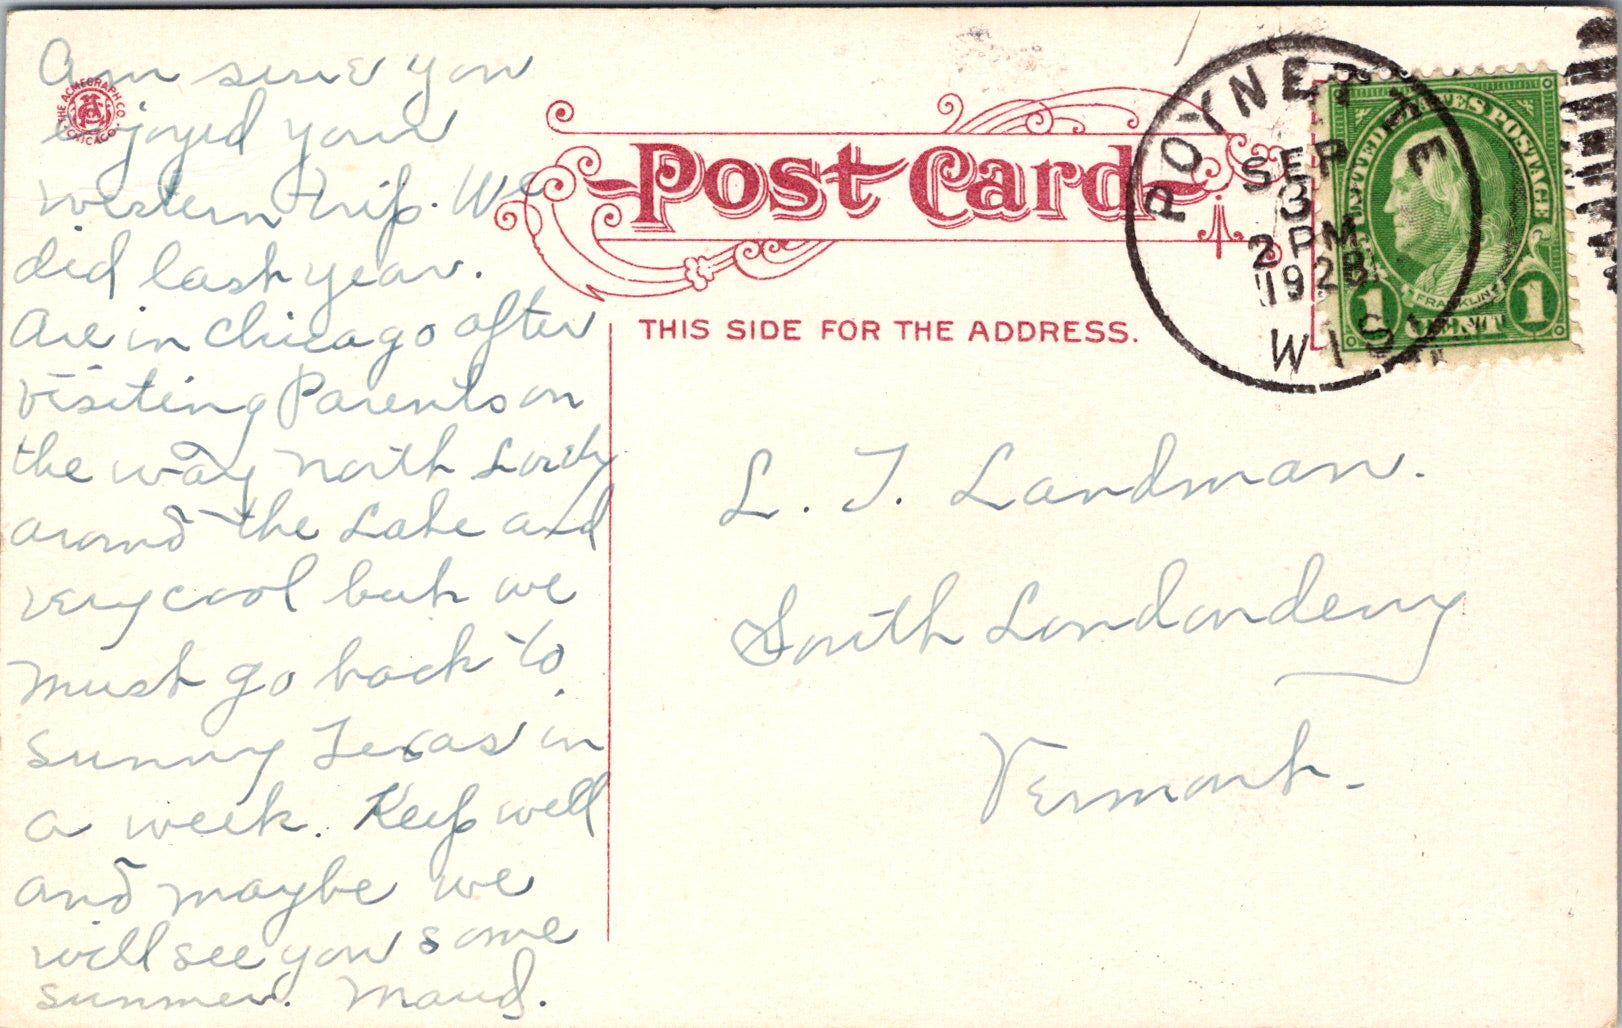 Am sure you
enjoyed your
western trip. We
did last year.
Are in Chicago after
visiting Parents on
the way north Lovely
around the Lake and
very cool but we
must go back to
sunny Texas in
a week. Keep well
and maybe we
will see you some
summer. Maud.
THE ACMEGRAPH CO.
CHICAGO
Post Card
THIS SIDE FOR THE ADDRESS.
POYNETTE
SEP
3
2 PM
1928
WIS.
UNITED STATES POSTAGE
FRANKLIN
1 CENT 1
L. T. Landman.
South Londonderry
Vermont.